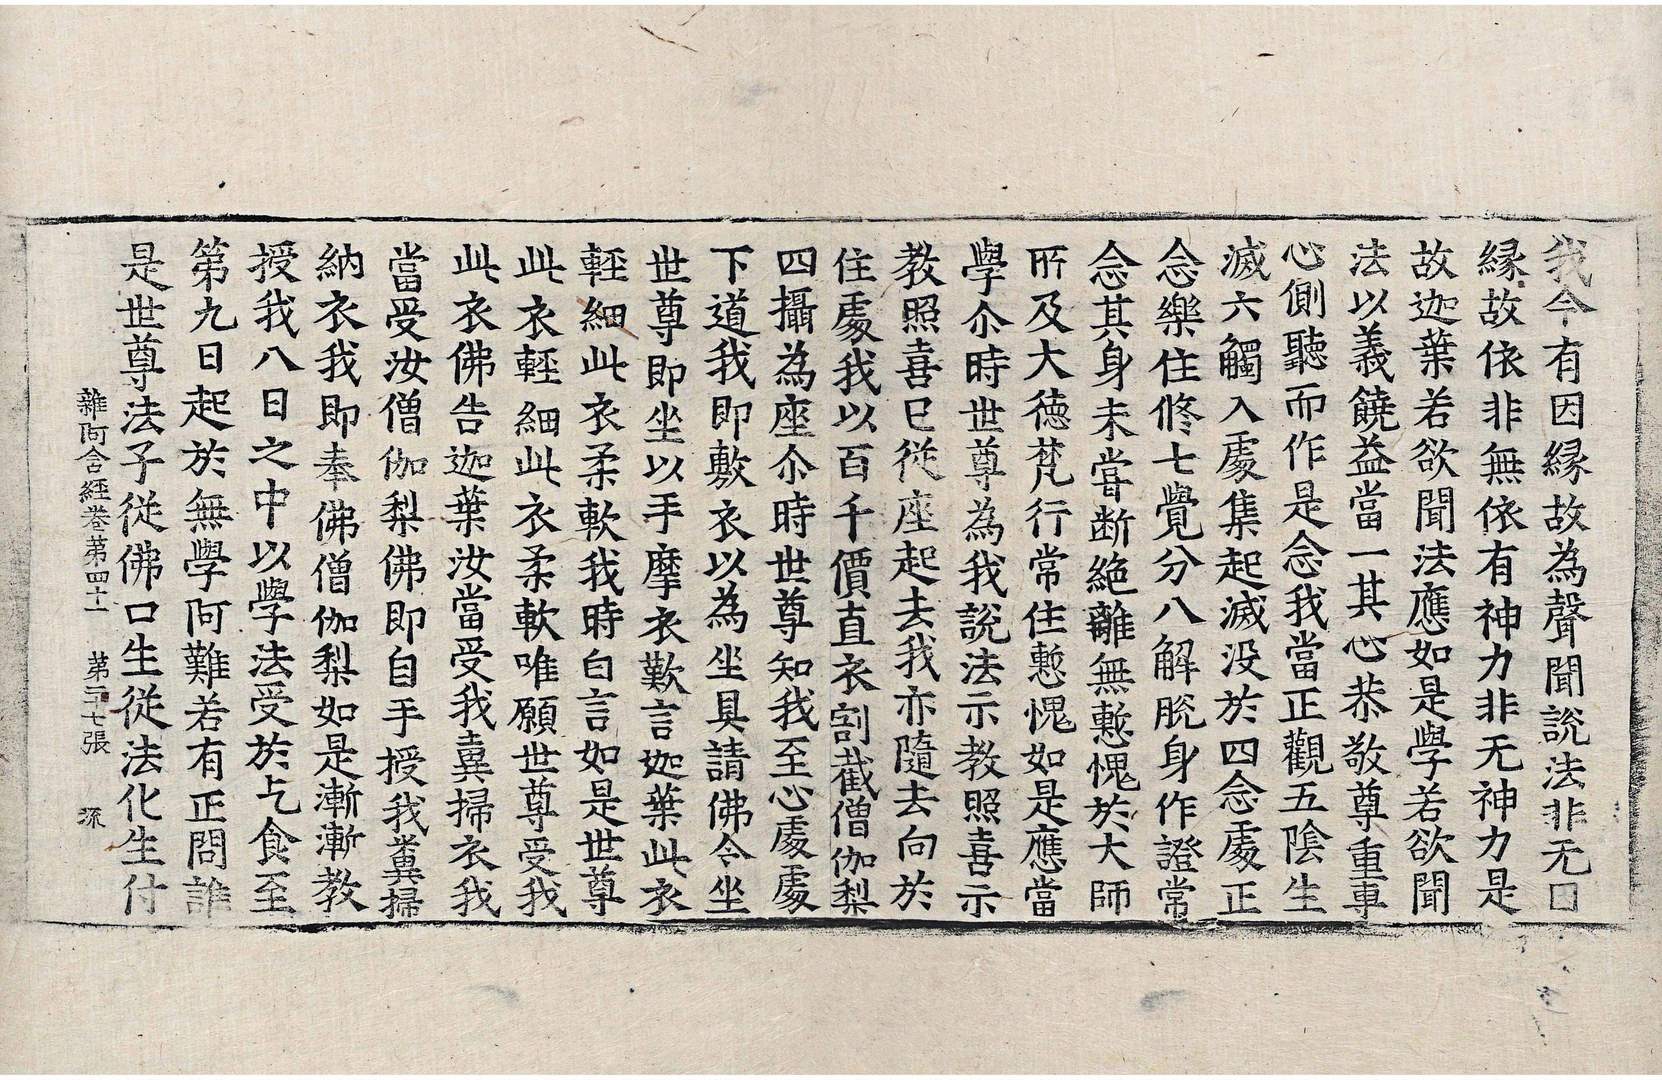 我今有因縁故為聲聞說法非无因
縁故依非無依有神力非无神力是
故迦葉若欲聞法應如是學若欲聞
法以義饒益當一其心恭敬尊重專
心側聽而作是念我當正觀五陰生
滅六觸入處集起滅没於四念處正
念樂住修七覺分八解脫身作證常
念其身未甞断絶離無慙愧於大師
所及大德梵行常住慙愧如是應當
學尒時世尊為我說法示教照喜示
教照喜巳從座起去我亦隨去向於
住處我以百千價直衣割截僧伽梨
四攝為座尒時世尊知我至心處處
下道我即敷衣以為坐具請佛令坐
世尊即坐以手摩衣歎言迦葉此衣
輕細此衣柔軟我時白言如是世尊
此衣輕細此衣柔軟唯願世尊受我
此衣佛告迦葉汝當受我糞掃衣我
當受汝僧伽梨佛即自手授我糞掃
納衣我即奉佛僧伽梨如是漸漸教
授我八日之中以學法受於乞食至
第九日起於無學阿難若有正問誰
是世尊法子從佛口生從法化生付
雜阿含經卷第四十一 第二十七張 流